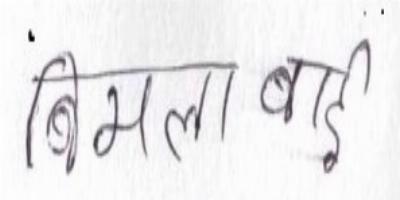 बिमला बाई